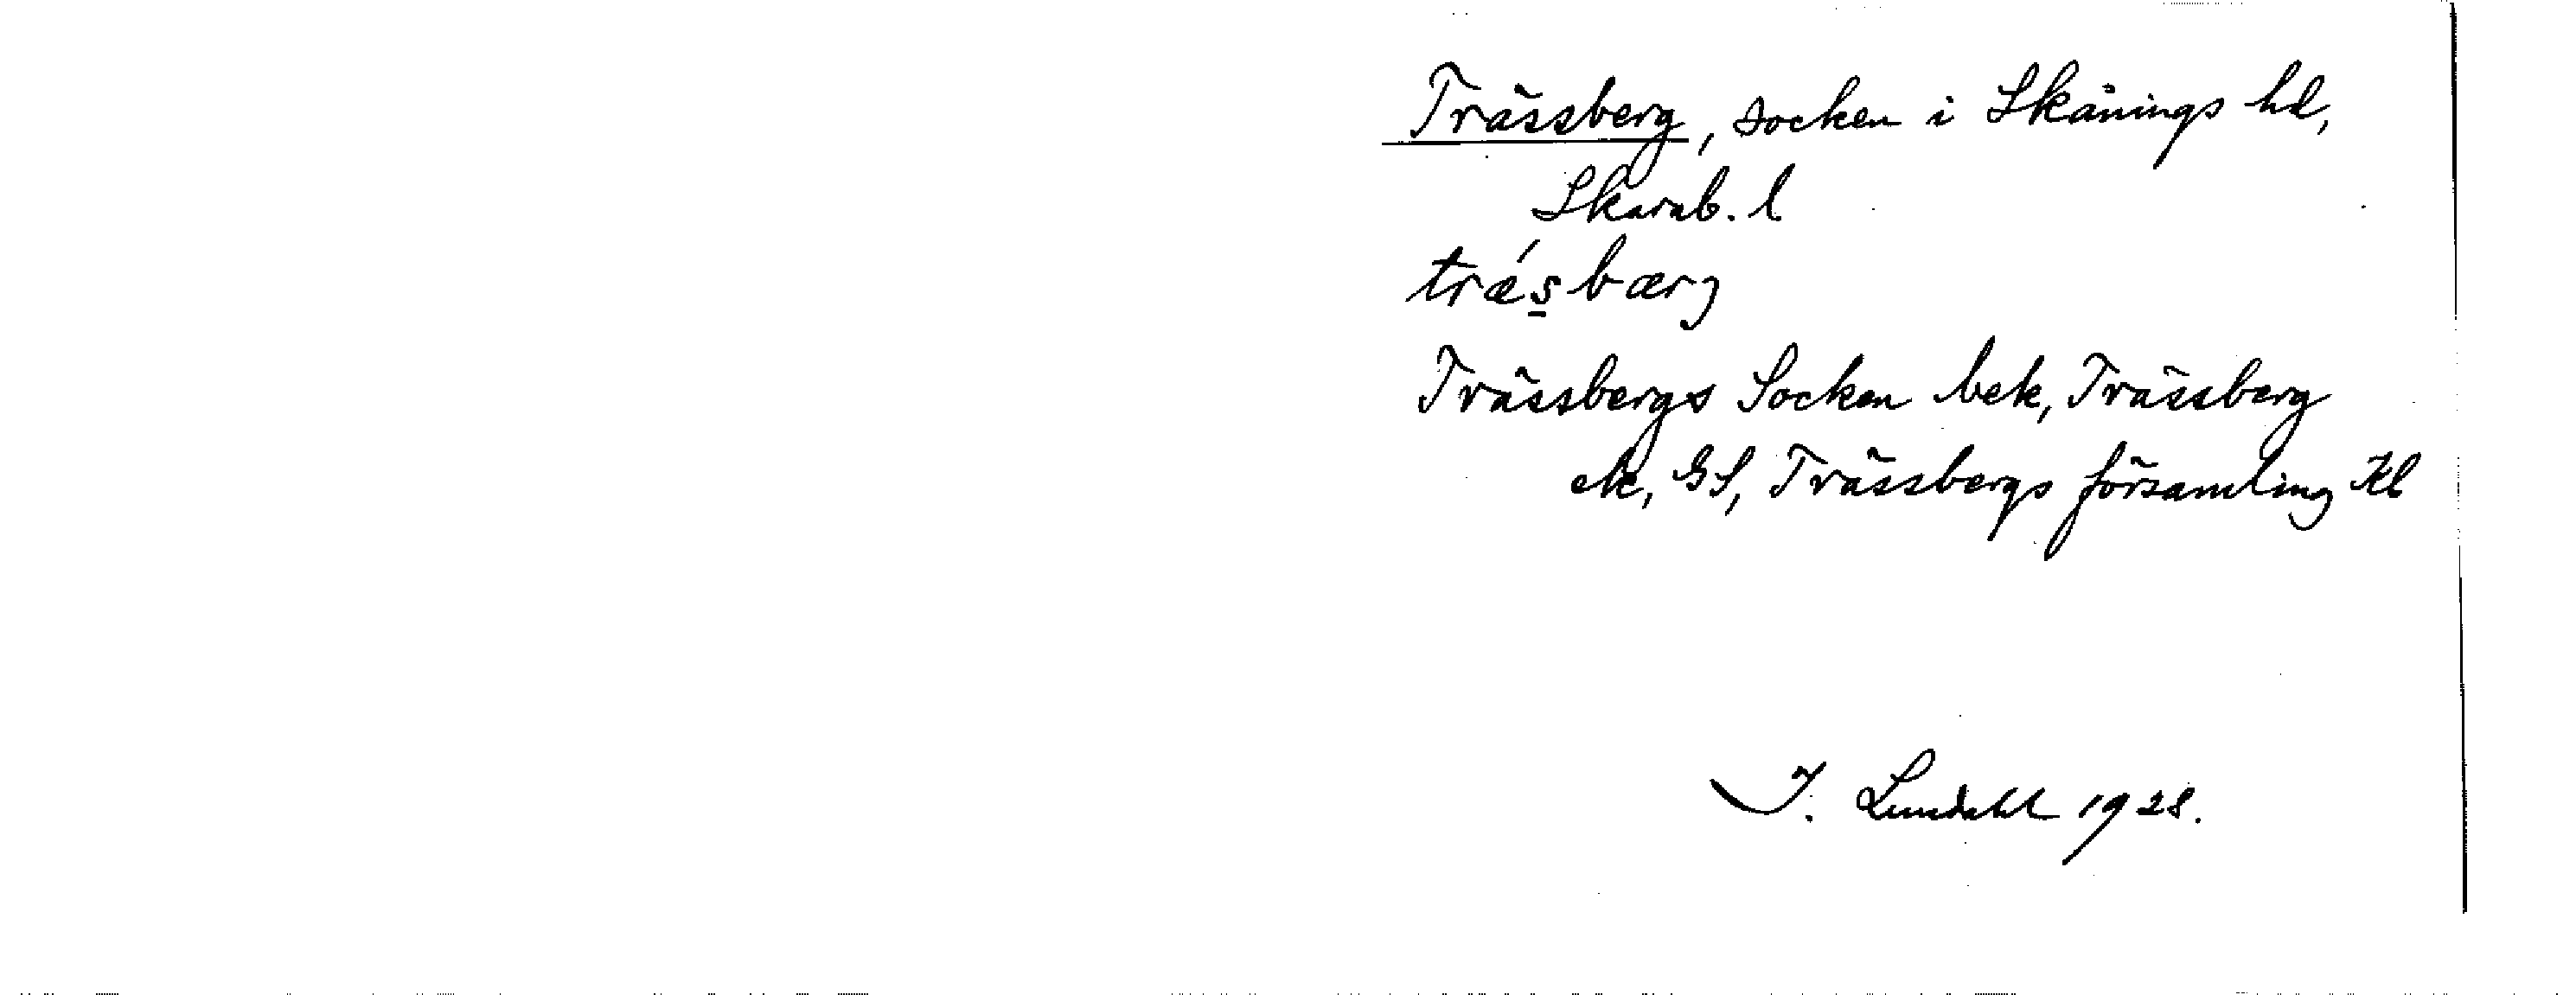 Trässberg, socken i Skånings hd,
Skarab. l
træ´s̲bærj
Trässbergs Socken bek, Trässberg
ek, GS, Trässbergs församling Kb
I. Lundahl 1928.